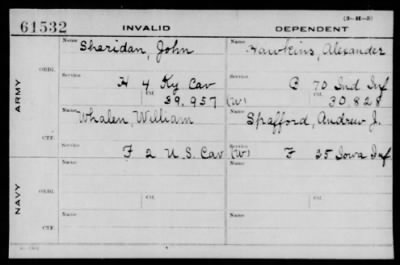 (3-H-5)
61532 INVALID DEPENDENT
Name Sheridan, John Name Hawkins, Alexander
ARMY
ORIG.
Service H 4 Ky Cav Service C 70 Ind Inf
Ctf. 39.957 (W) Ctf. 30.828
Name Whalen, William Name Spafford, Andrew J.
CTF.
Service F 2 U.S. Cav Service (W) F 35 Iowa Inf
NAVY
Name Name
ORIG.
Service Ctf. Service Ctf.
Name Name
CTF.
Service Service